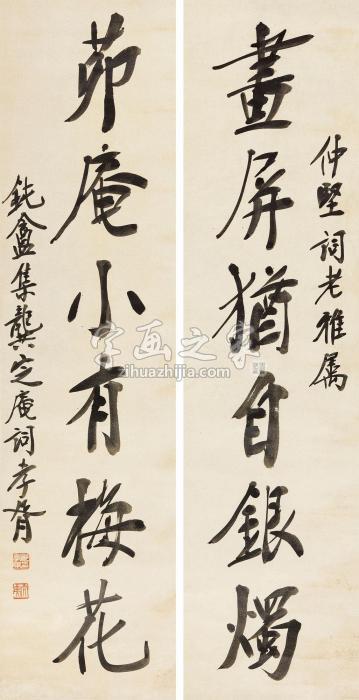 仲堅詞老雅属
畫屏猶自銀燭
茆庵小有梅花
鈍盦集龔定庵詞孝胥
字画之家
zihuazhijia.com